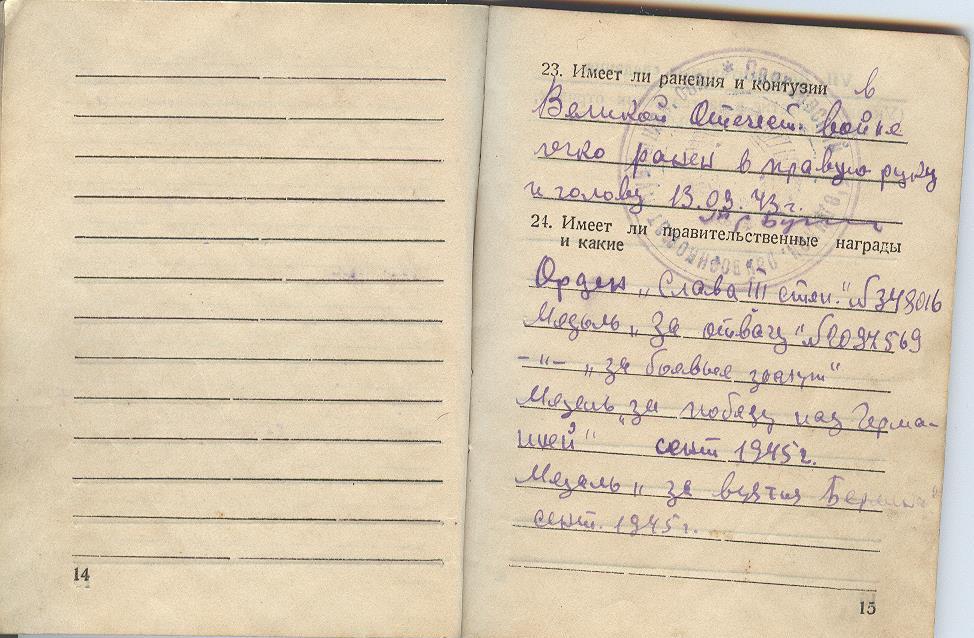 14
23. Имеет ли ранения и контузии в
Великой Отечест. войне
легко ранен в правую руку
и голову 13.03.43 г.
24. Имеет ли правительственные награды
и какие
Орден „Слава III степ." №
Медаль „За отвагу" №
-"- „за боевые
Медаль „за победу над Герма-
нией" сент 1945 г.
Медаль „за взятия Берлин"
сент. 1945 г.
15